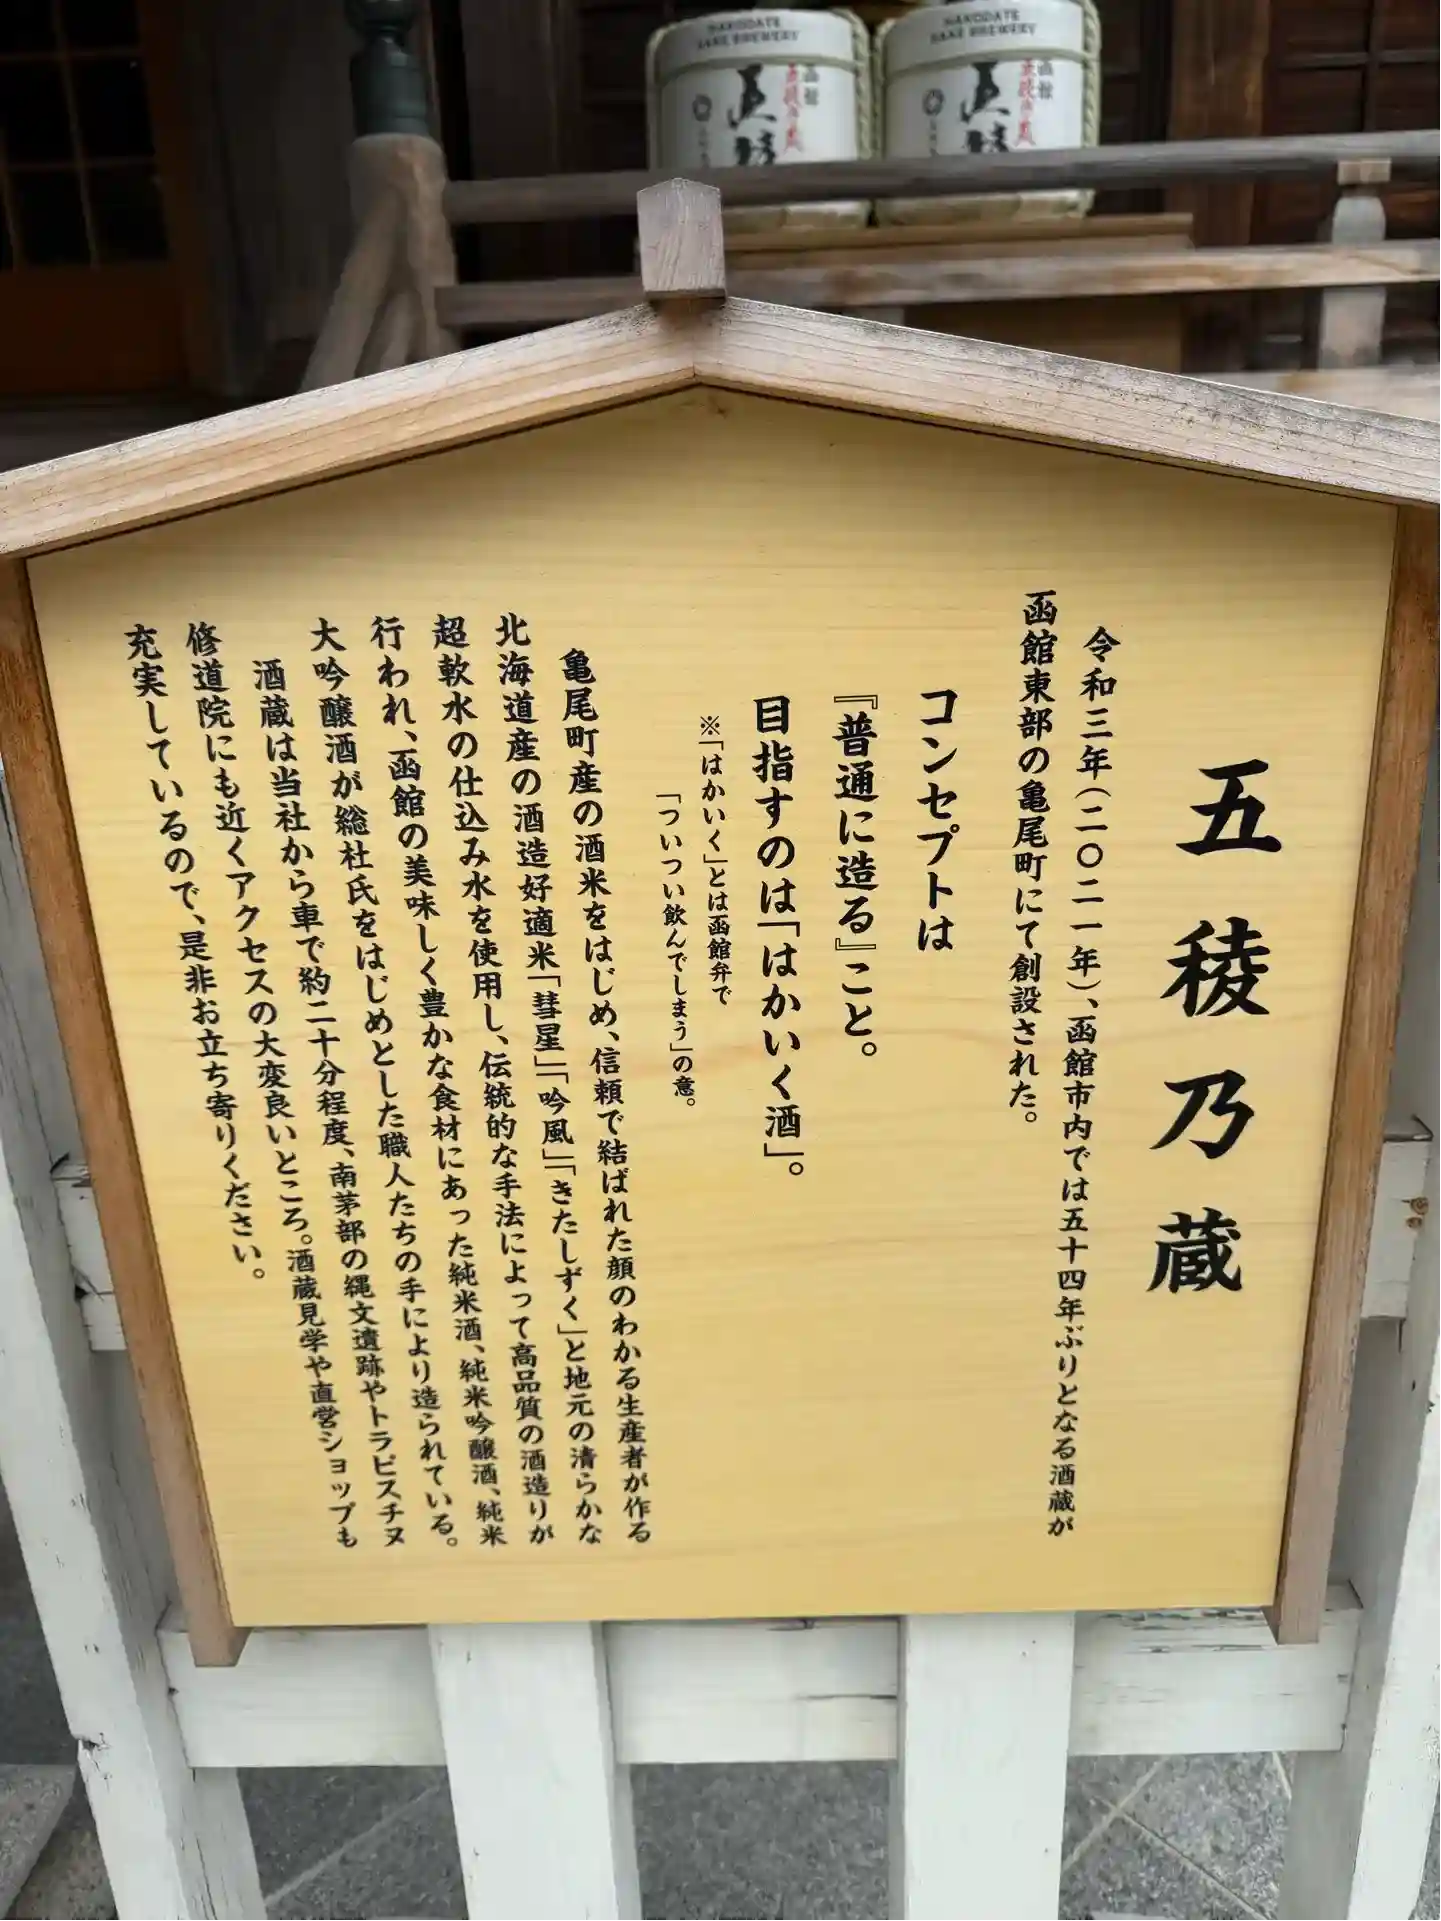 HAKODATE
SAKE BREWERY
函館
五稜乃蔵
HAKODATE
SAKE BREWERY
函館
五稜乃蔵
五稜乃蔵
令和三年(二〇二一年)、函館市内では五十四年ぶりとなる酒蔵が
函館東部の亀尾町にて創設された。
コンセプトは
『普通に造る』こと。
目指すのは「はかいく酒」。
※「はかいく」とは函館弁で
「ついつい飲んでしまう」の意。
亀尾町産の酒米をはじめ、信頼で結ばれた顔のわかる生産者が作る
北海道産の酒造好適米「彗星」「吟風」「きたしずく」と地元の清らかな
超軟水の仕込み水を使用し、伝統的な手法によって高品質の酒造りが
行われ、函館の美味しく豊かな食材にあった純米酒、純米吟醸酒、純米
大吟醸酒が総杜氏をはじめとした職人たちの手により造られている。
酒蔵は当社から車で約二十分程度、南茅部の縄文遺跡やトラピスチヌ
修道院にも近くアクセスの大変良いところ。酒蔵見学や直営ショップも
充実しているので、是非お立ち寄りください。